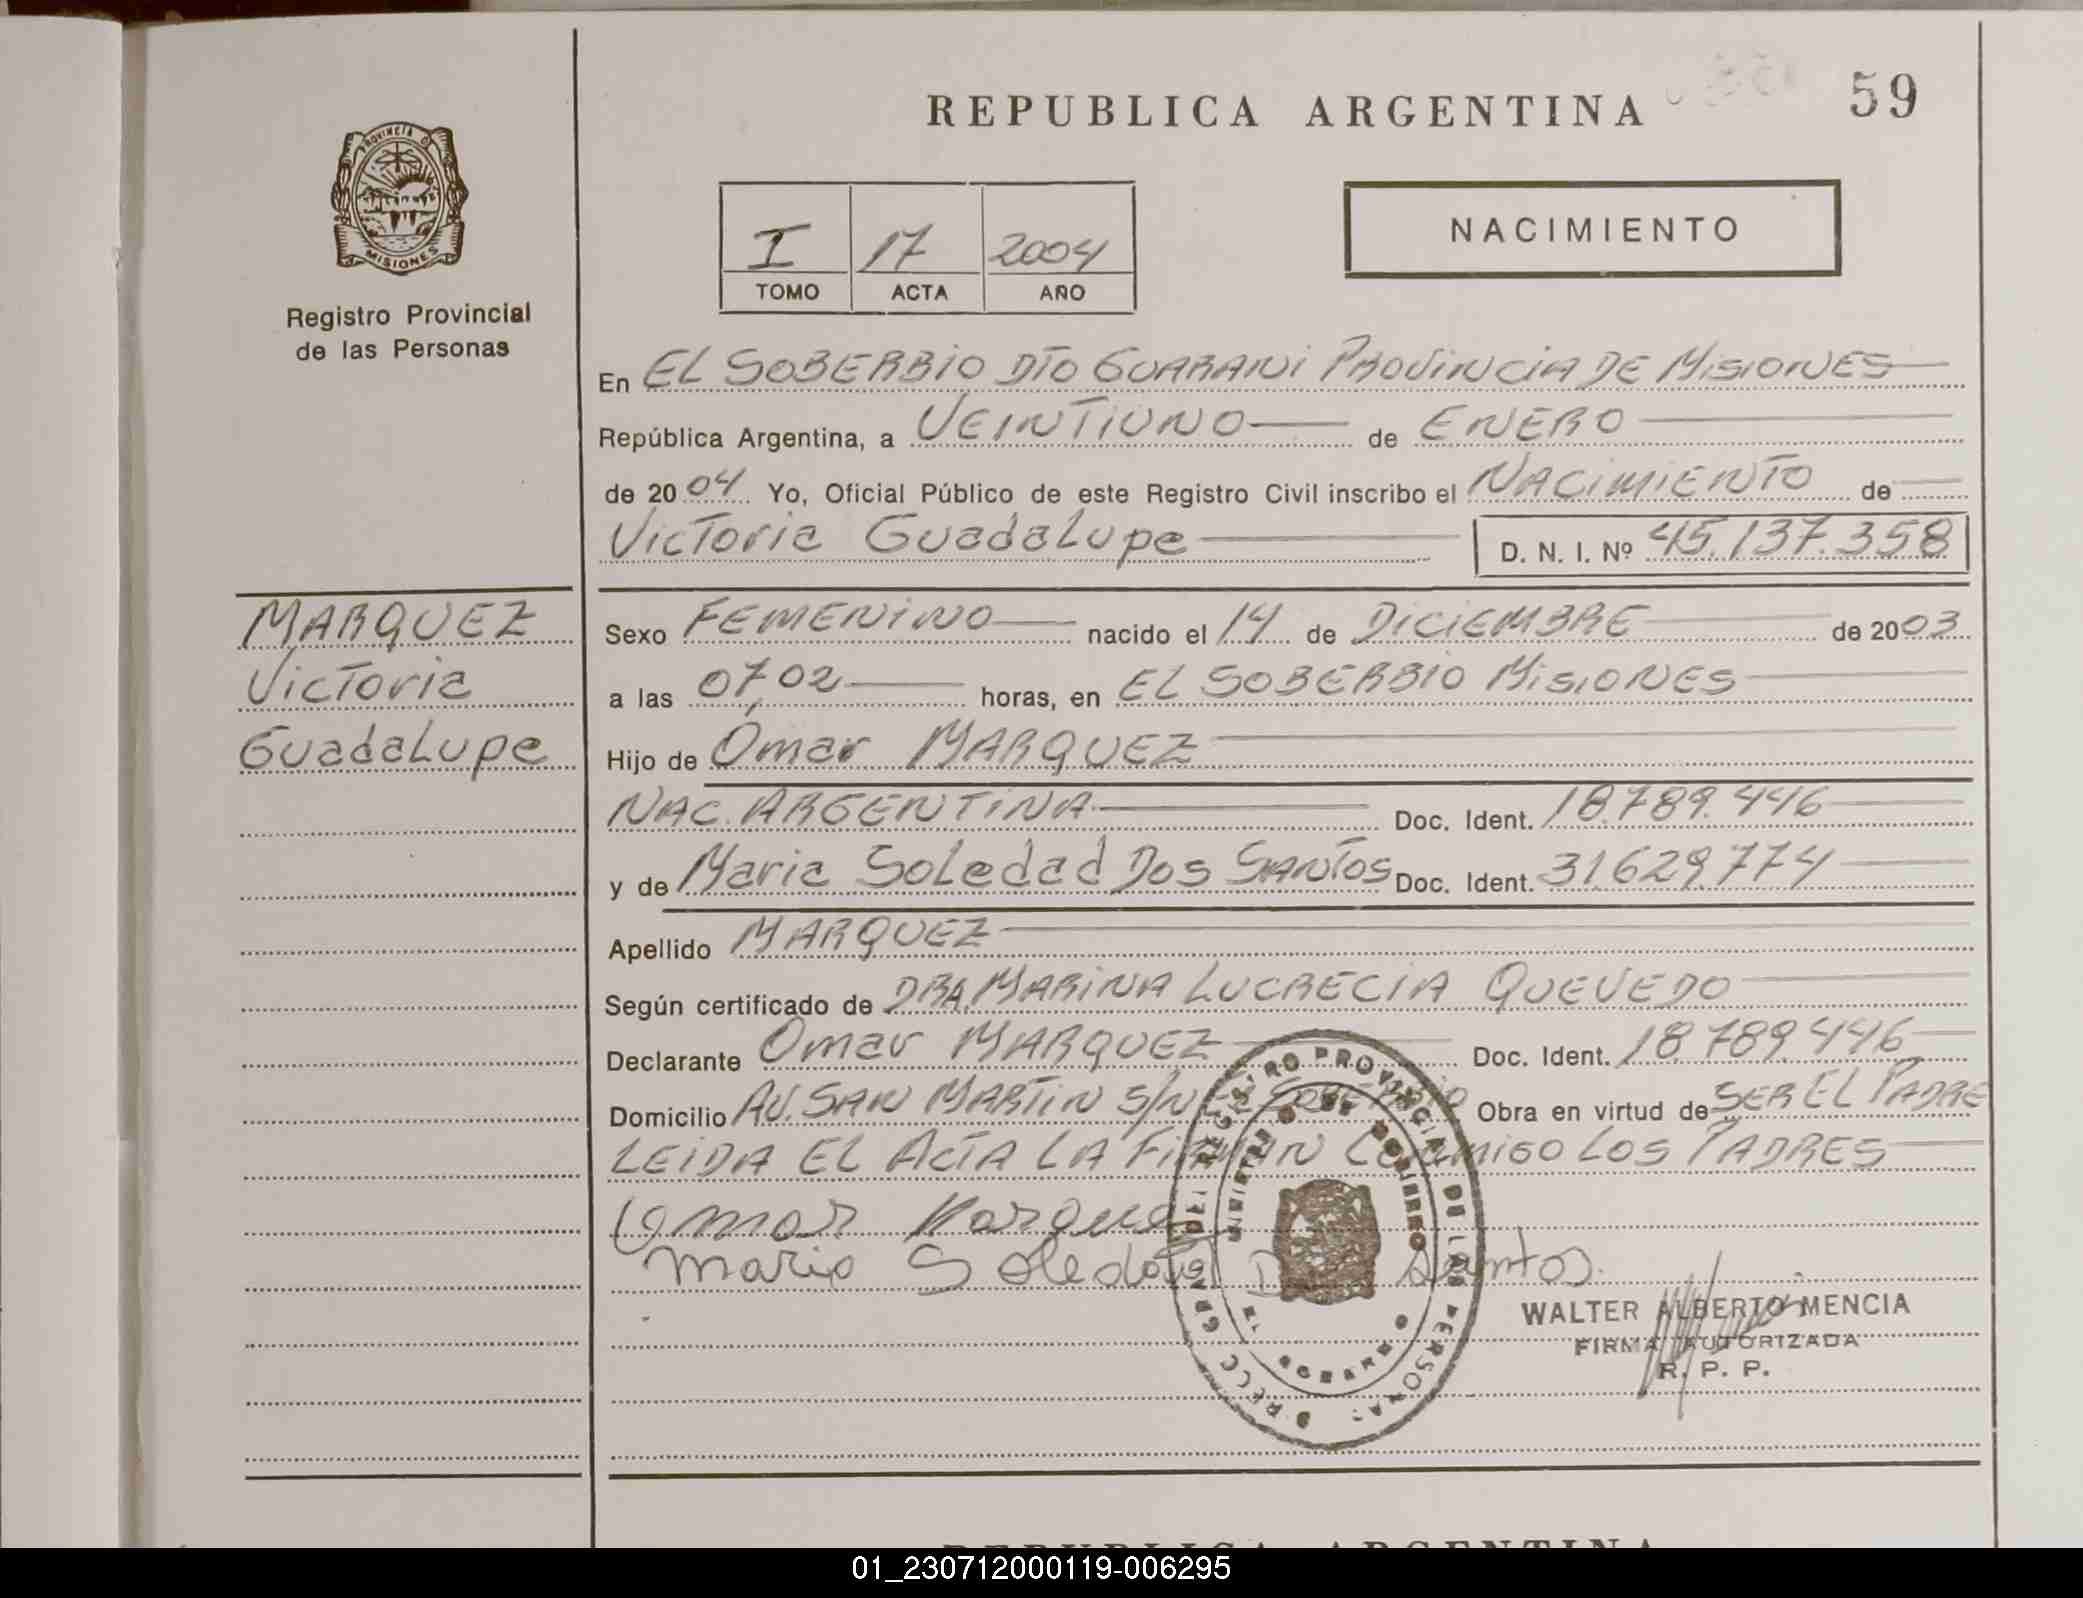 REPUBLICA ARGENTINA
59
PROVINCIA D
MISIONES
Registro Provincial
de las Personas
I 17 2004
TOMO ACTA AÑO
NACIMIENTO
En EL SOBERBIO DTO GUARANI PROVINCIA DE MISIONES
República Argentina, a VEINTIUNO de ENERO
de 2004. Yo, Oficial Público de este Registro Civil inscribo el NACIMIENTO de
Victoria Guadalupe
D. N. I. Nº 45.137.358
MARQUEZ
Victoria
Guadalupe
Sexo FEMENINO nacido el 14 de DICIEMBRE de 2003
a las 07,02 horas, en EL SOBERBIO MISIONES
Hijo de Omar MARQUEZ
NAC. ARGENTINA Doc. Ident. 18.789.446
y de Maria Soledad Dos Santos Doc. Ident. 31.629.774
Apellido MARQUEZ
Según certificado de DRA. MARINA LUCRECIA QUEVEDO
Declarante Omar MARQUEZ Doc. Ident. 18.789.446
Domicilio AV. SAN MARTIN S/N EL SOBERBIO Obra en virtud de SER EL PADRE
LEIDA EL ACTA LA FIRMAN CONMIGO LOS PADRES
Omar Marquez
Maria Soledad Dos Santos.
REGISTRO PROVINCIAL DE LAS PERSONAS
MINISTERIO DE GOBIERNO
WALTER ALBERTO MENCIA
FIRMA AUTORIZADA
R. P. P.
REPUBLICA ARGENTINA
01_230712000119-006295